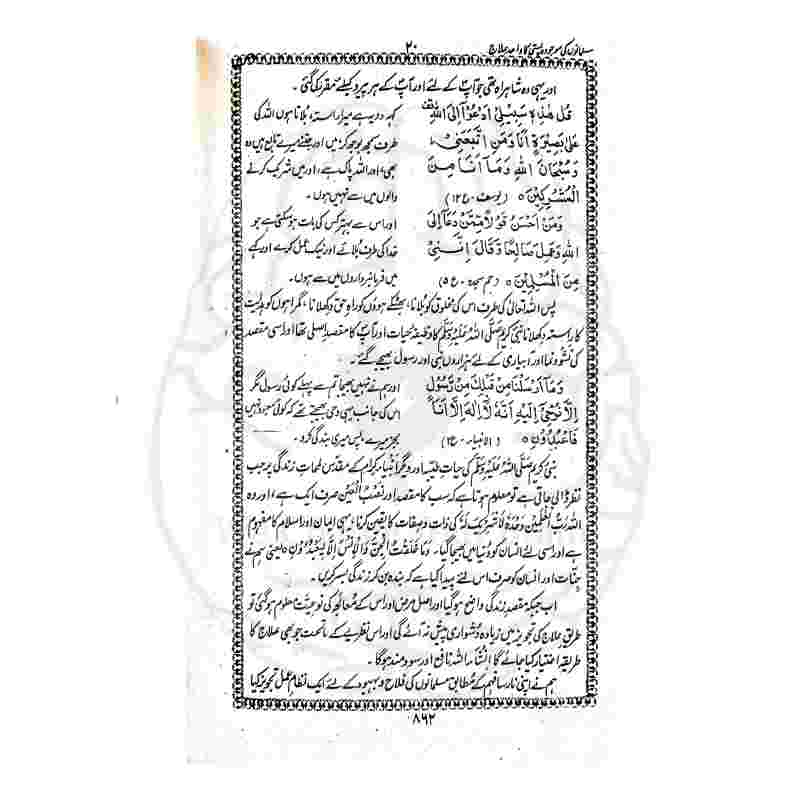 مسلمانوں کی موجودہ پستی کا واحد علاج
۲۰
اور یہی وہ شاہراہ تھی جو آپؐ کے لئے اور آپؐ کے ہر پیرو کیلئے مقرر کی گئی۔
قُلْ هٰذِهٖ سَبِيْلِيْٓ اَدْعُوْٓا اِلَى اللّٰهِ
عَلٰى بَصِيْرَةٍ اَنَا وَمَنِ اتَّبَعَنِيْ
وَسُبْحَانَ اللّٰهِ وَمَآ اَنَا مِنَ
الْمُشْرِكِيْنَ ۝ (یوسف۔ ع ۱۲)
کہہ دو یہ ہے میرا راستہ، بلاتا ہوں اللہ کی
طرف سمجھ بوجھ کر، میں اور جتنے میرے تابع ہیں وہ
بھی، اور اللہ پاک ہے، اور میں شریک کرنے
والوں میں سے نہیں ہوں۔
وَمَنْ اَحْسَنُ قَوْلًا مِّمَّنْ دَعَآ اِلَى
اللّٰهِ وَعَمِلَ صَالِحًا وَّقَالَ اِنَّنِيْ
مِنَ الْمُسْلِمِيْنَ ۝ (حم سجدہ۔ ع ۵)
اور اس سے بہتر کس کی بات ہو سکتی ہے جو
خدا کی طرف بلائے اور نیک عمل کرے اور کہے
میں فرمانبرداروں میں سے ہوں۔
پس اللہ تعالیٰ کی طرف اس کی مخلوق کو بلانا، بھٹکے ہوؤں کو راہِ حق دکھلانا، گمراہوں کو ہدایت
کا راستہ دکھلانا نبی کریم صَلَّى اللهُ عَلَيْهِ وَسَلَّم کا وظیفۂ حیات اور آپؐ کا مقصد اصلی تھا اور اسی مقصد
کی نشو و نما اور آبیاری کے لئے ہزاروں نبی اور رسول بھیجے گئے۔
وَمَآ اَرْسَلْنَا مِنْ قَبْلِكَ مِنْ رَّسُوْلٍ
اِلَّا نُوْحِيْٓ اِلَيْهِ اَنَّهٗ لَآ اِلٰهَ اِلَّآ اَنَا
فَاعْبُدُوْنِ ۝ (الانبیاء۔ ع ۲)
اور ہم نے نہیں بھیجا تم سے پہلے کوئی رسول مگر
اس کی جانب یہی وحی بھیجتے تھے کہ کوئی معبود نہیں
بجز میرے، پس میری بندگی کرو۔
نبی کریم صَلَّى اللهُ عَلَيْهِ وَسَلَّم کی حیات طیبہ اور دیگر انبیاء کرام کے مقدس لمحات زندگی پر جب
نظر ڈالی جاتی ہے تو معلوم ہوتا ہے کہ سب کا مقصد اور نصب العین صرف ایک ہے، اور وہ
اللہ رب العلمین وحدہ لا شریک لہ کی ذات و صفات کا یقین کرنا، یہی ایمان اور اسلام کا مفہوم
ہے اور اسی لئے انسان کو دنیا میں بھیجا گیا۔ وَمَا خَلَقْتُ الْجِنَّ وَالْاِنْسَ اِلَّا لِيَعْبُدُوْنِ ۝ یعنی ہم نے
جنات اور انسان کو صرف اس لئے پیدا کیا ہے کہ بندہ بن کر زندگی بسر کریں۔
اب جبکہ مقصد زندگی واضح ہو گیا اور اصل مرض اور اس کے معالجہ کی نوعیت معلوم ہو گئی تو
طریقِ علاج کی تجویز میں زیادہ دشواری پیش نہ آئے گی اور اس نظریے کے ماتحت جو بھی علاج کا
طریقہ اختیار کیا جائے گا انشاء اللہ نافع اور سود مند ہو گا۔
ہم نے اپنی نارسا فہم کے مطابق مسلمانوں کی فلاح و بہبود کے لئے ایک نظامِ عمل تجویز کیا
۸۶۲